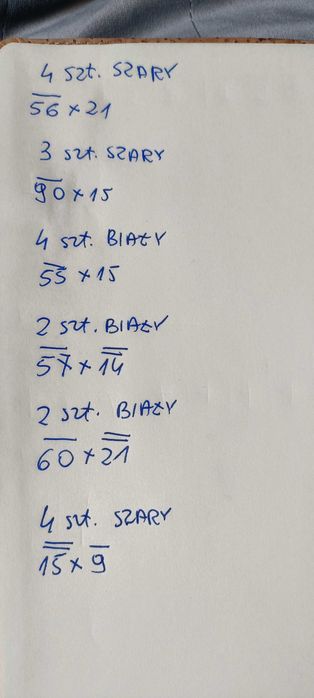 4 szt. SZARY
56 x 21
3 szt. SZARY
90 x 15
4 szt. BIAŁY
55 x 15
2 szt. BIAŁY
57 x 14
2 szt. BIAŁY
60 x 21
4 szt. SZARY
15 x 9